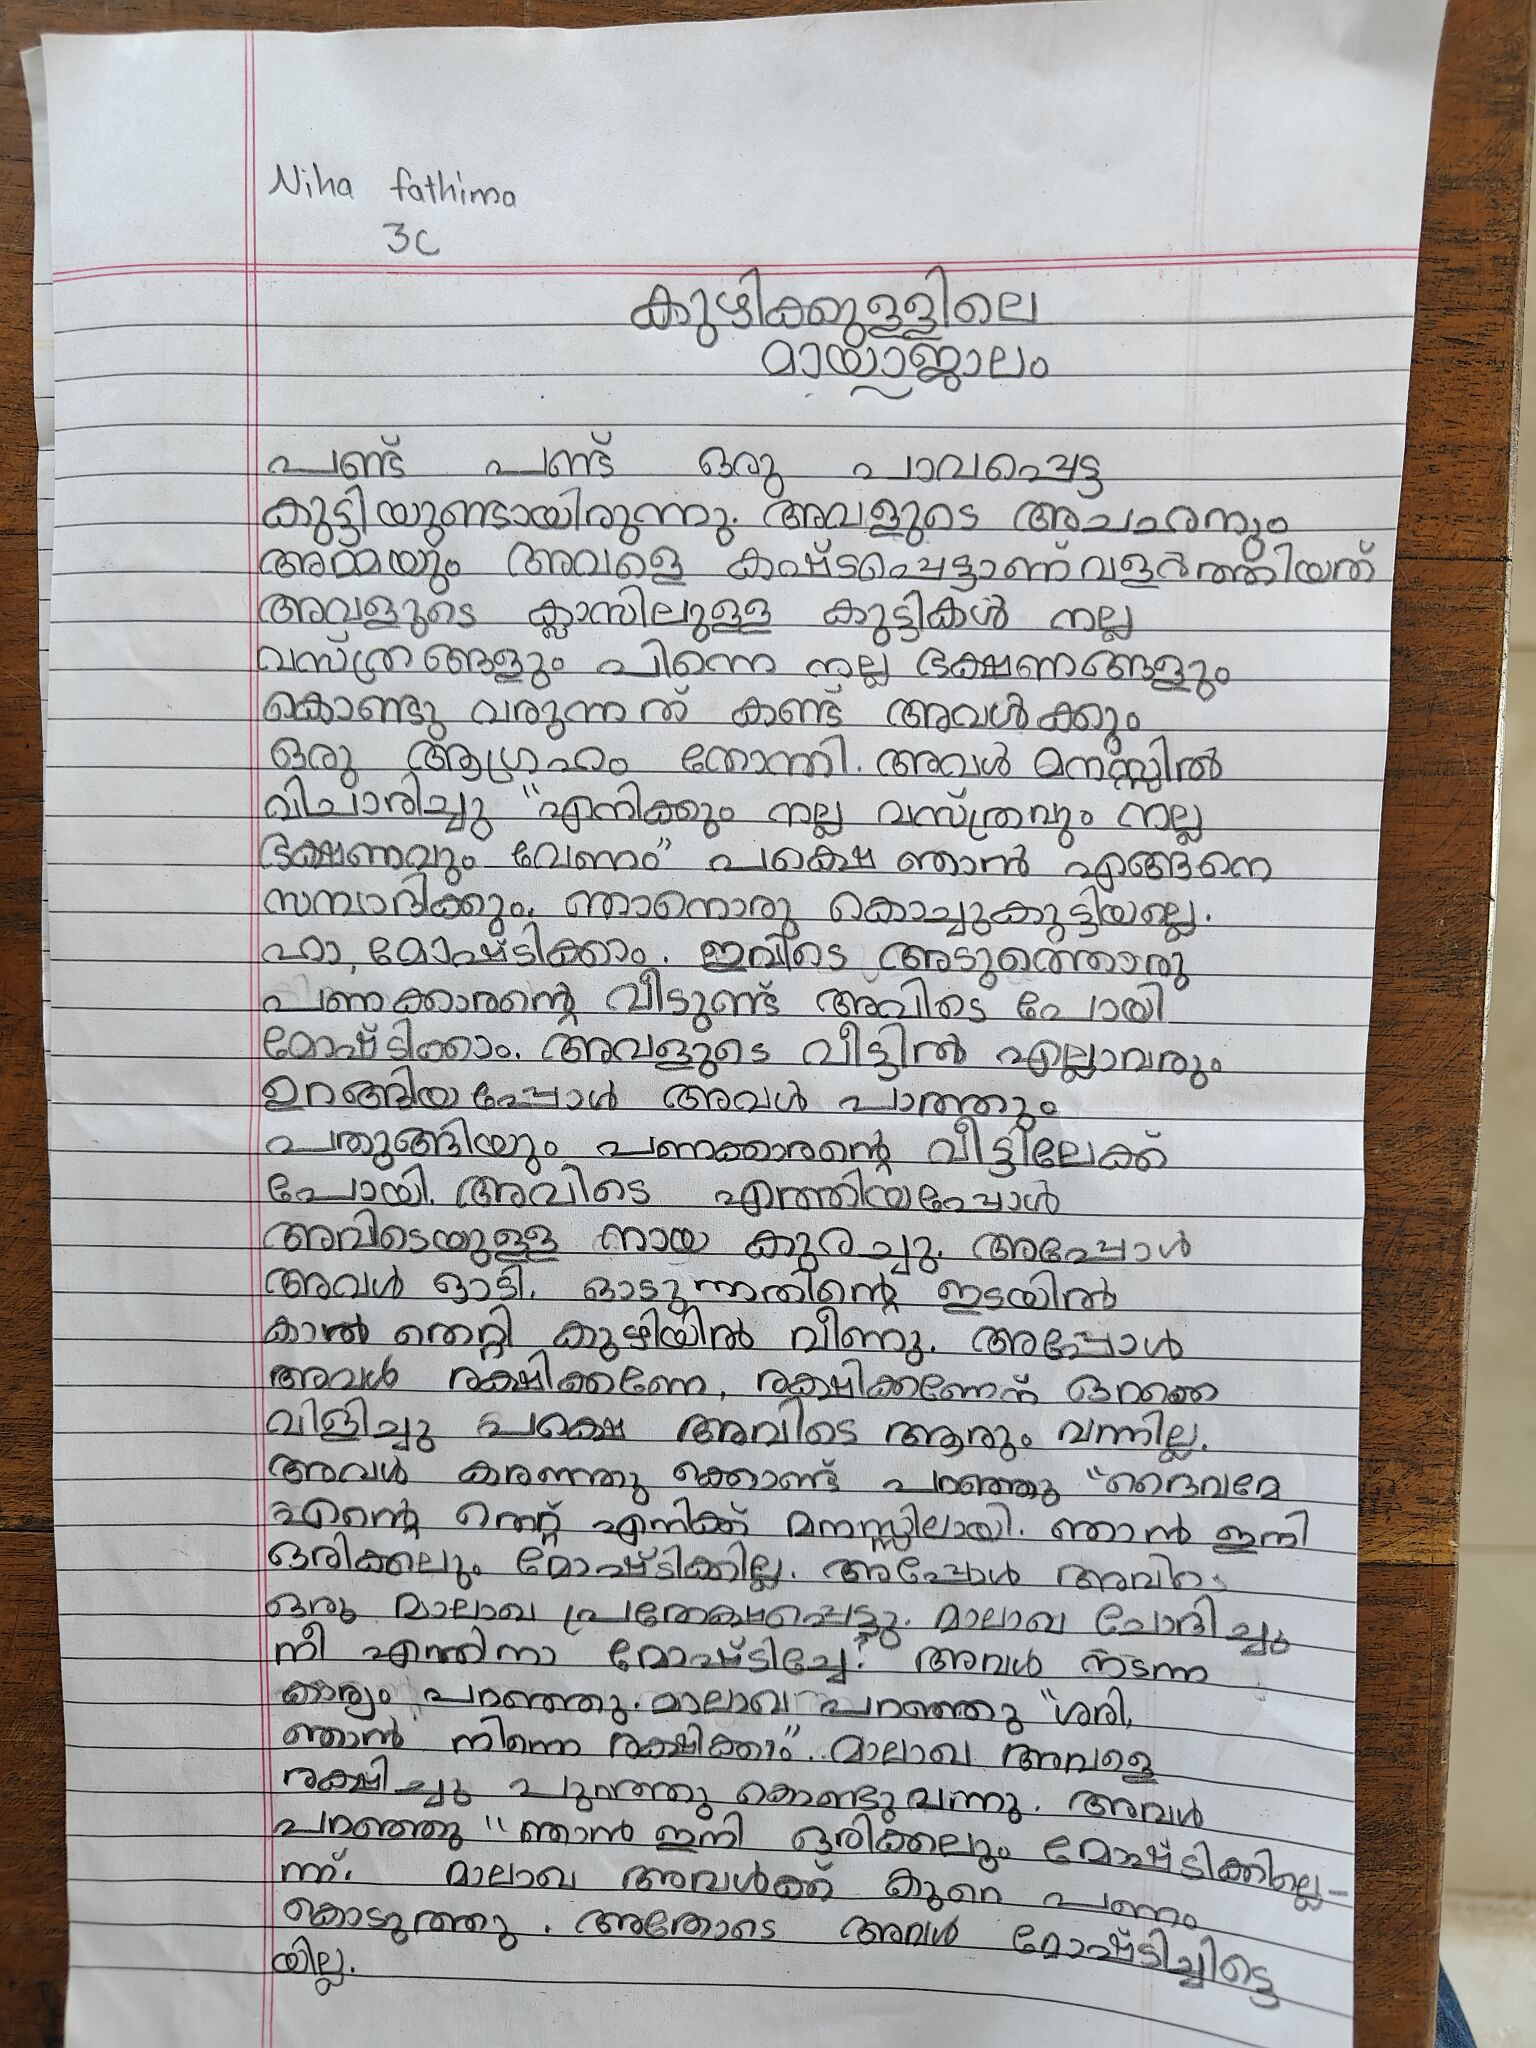 Niha fathima
3C
കുഴിക്കുള്ളിലെ
മായാജാലം
പണ്ട് പണ്ട് ഒരു പാവപ്പെട്ട
കുട്ടിയുണ്ടായിരുന്നു. അവളുടെ അച്ഛനും
അമ്മയും അവളെ കഷ്ടപ്പെട്ടാണ് വളർത്തിയത്
അവളുടെ ക്ലാസിലുള്ള കുട്ടികൾ നല്ല
വസ്ത്രങ്ങളും പിന്നെ നല്ല ഭക്ഷണങ്ങളും
കൊണ്ടു വരുന്നത് കണ്ട് അവൾക്കും
ഒരു ആഗ്രഹം തോന്നി. അവൾ മനസ്സിൽ
വിചാരിച്ചു "എനിക്കും നല്ല വസ്ത്രവും നല്ല
ഭക്ഷണവും വേണം" പക്ഷെ ഞാൻ എങ്ങനെ
സമ്പാദിക്കും. ഞാനൊരു കൊച്ചുകുട്ടിയല്ലെ.
ഹാ, മോഷ്ടിക്കാം. ഇവിടെ അടുത്തൊരു
പണക്കാരന്റെ വീടുണ്ട് അവിടെ പോയി
മോഷ്ടിക്കാം. അവളുടെ വീട്ടിൽ എല്ലാവരും
ഉറങ്ങിയപ്പോൾ അവൾ പാത്തും
പതുങ്ങിയും പണക്കാരന്റെ വീട്ടിലേക്ക്
പോയി. അവിടെ എത്തിയപ്പോൾ
അവിടെയുള്ള നായ കുരച്ചു. അപ്പോൾ
അവൾ ഓടി. ഓടുന്നതിന്റെ ഇടയിൽ
കാൽ തെറ്റി കുഴിയിൽ വീണു. അപ്പോൾ
അവൾ രക്ഷിക്കണേ, രക്ഷിക്കണേന്ന് ഒറക്കെ
വിളിച്ചു പക്ഷെ അവിടെ ആരും വന്നില്ല.
അവൾ കരഞ്ഞു ക്കൊണ്ട് പറഞ്ഞു "ദൈവമേ
എന്റെ തെറ്റ് എനിക്ക് മനസ്സിലായി. ഞാൻ ഇനി
ഒരിക്കലും മോഷ്ടിക്കില്ല. അപ്പോൾ അവിടെ
ഒരു മാലാഖ പ്രത്യേക്ഷപ്പെട്ടു. മാലാഖ ചോദിച്ചു
നീ എന്തിനാ മോഷ്ടിച്ചേ? അവൾ നടന്ന
കാര്യം പറഞ്ഞു. മാലാഖ പറഞ്ഞു "ശരി,
ഞാൻ നിന്നെ രക്ഷിക്കാം". മാലാഖ അവളെ
രക്ഷിച്ചു പുറത്തു കൊണ്ടുവന്നു. അവൾ
പറഞ്ഞു "ഞാൻ ഇനി ഒരിക്കലും മോഷ്ടിക്കില്ലെ-
ന്ന്. മാലാഖ അവൾക്ക് കുറെ പണം
കൊടുത്തു. അതോടെ അവൾ മോഷ്ടിച്ചിട്ടെ
യില്ല.